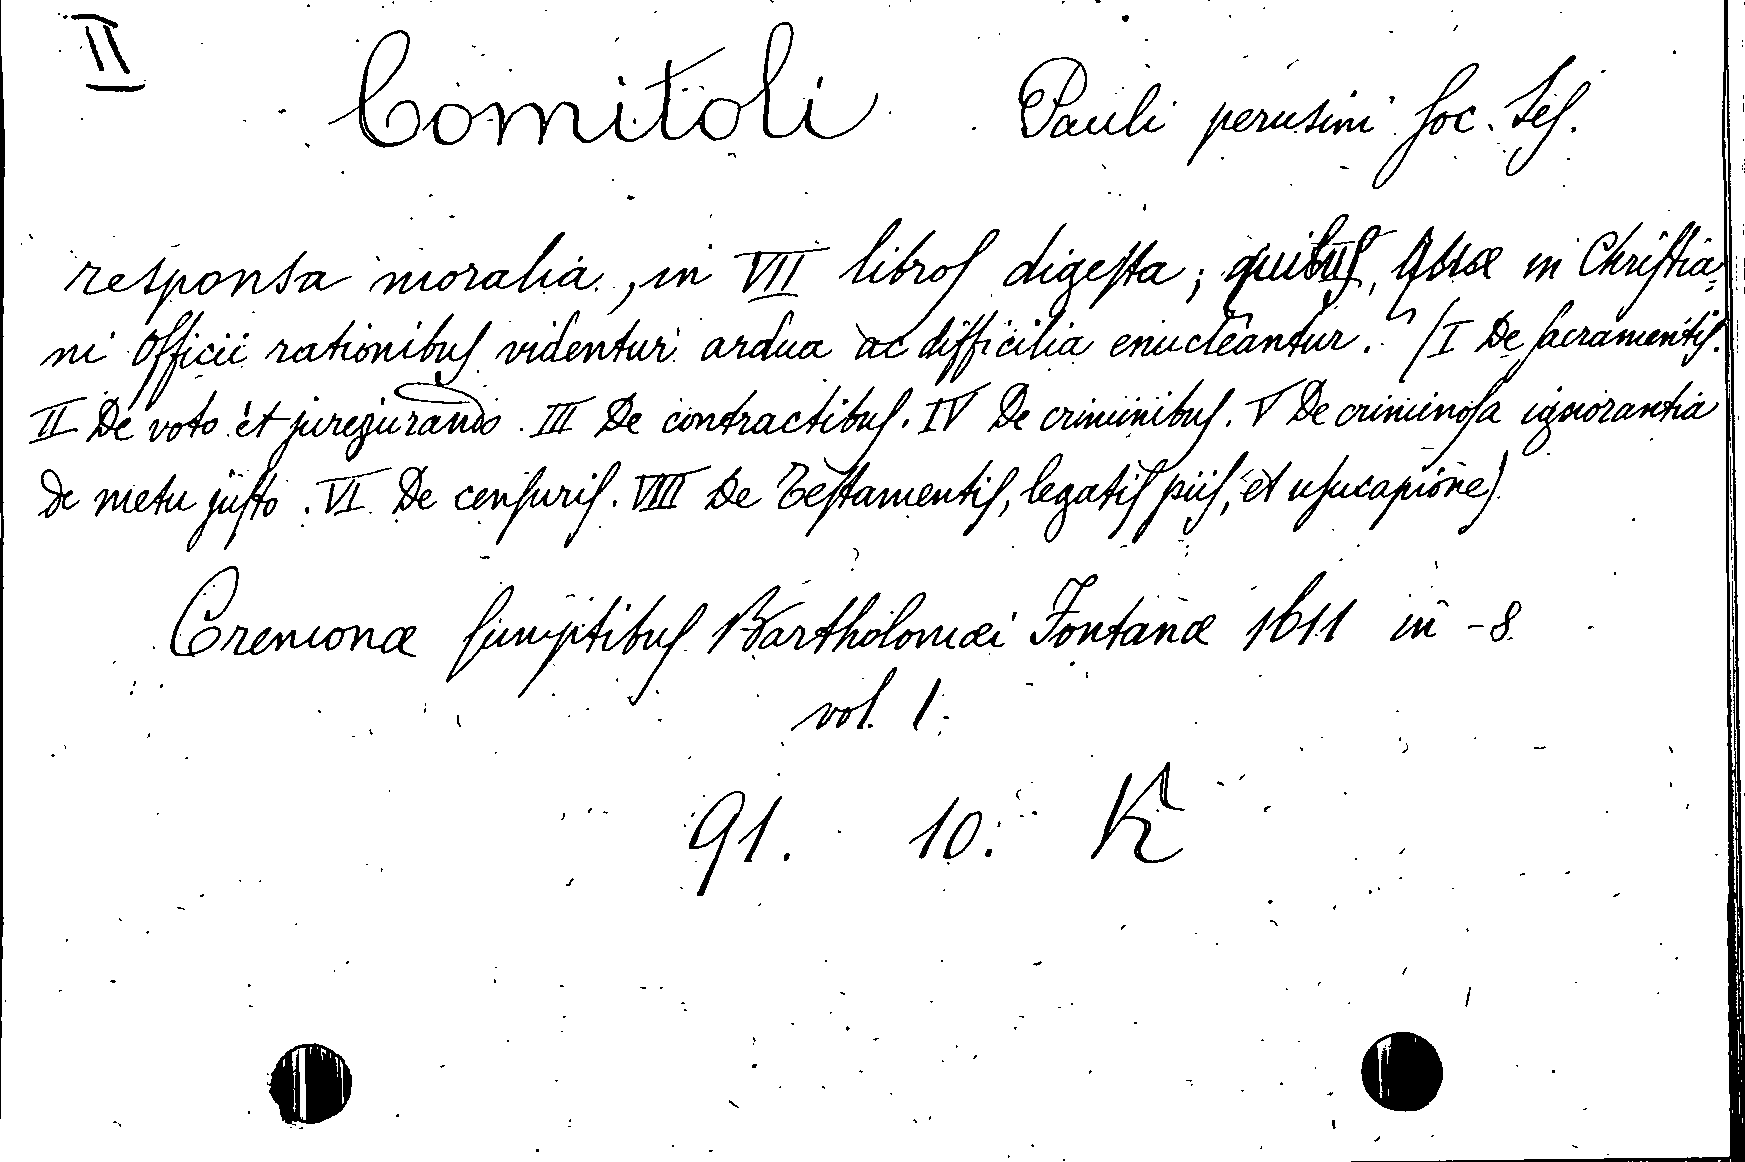 II
Comitoli Pauli perusini Soc. Jes.
responsa moralia, in VII libros digesta; quibus, quæ in Christia=
ni officii rationibus videntur ardua ac difficilia enucleantur. (I De sacramentis.
II De voto et jurejurando. III De contractibus. IV De criminibus. V De criminosa ignorantia
de metu justo. VI De censuris. VIII De Testamentis, legatis piis, et usucapione)
Cremonæ sumptibus Bartholomæi Fontanæ 1611 in-8
vol. 1.
91. 10. K